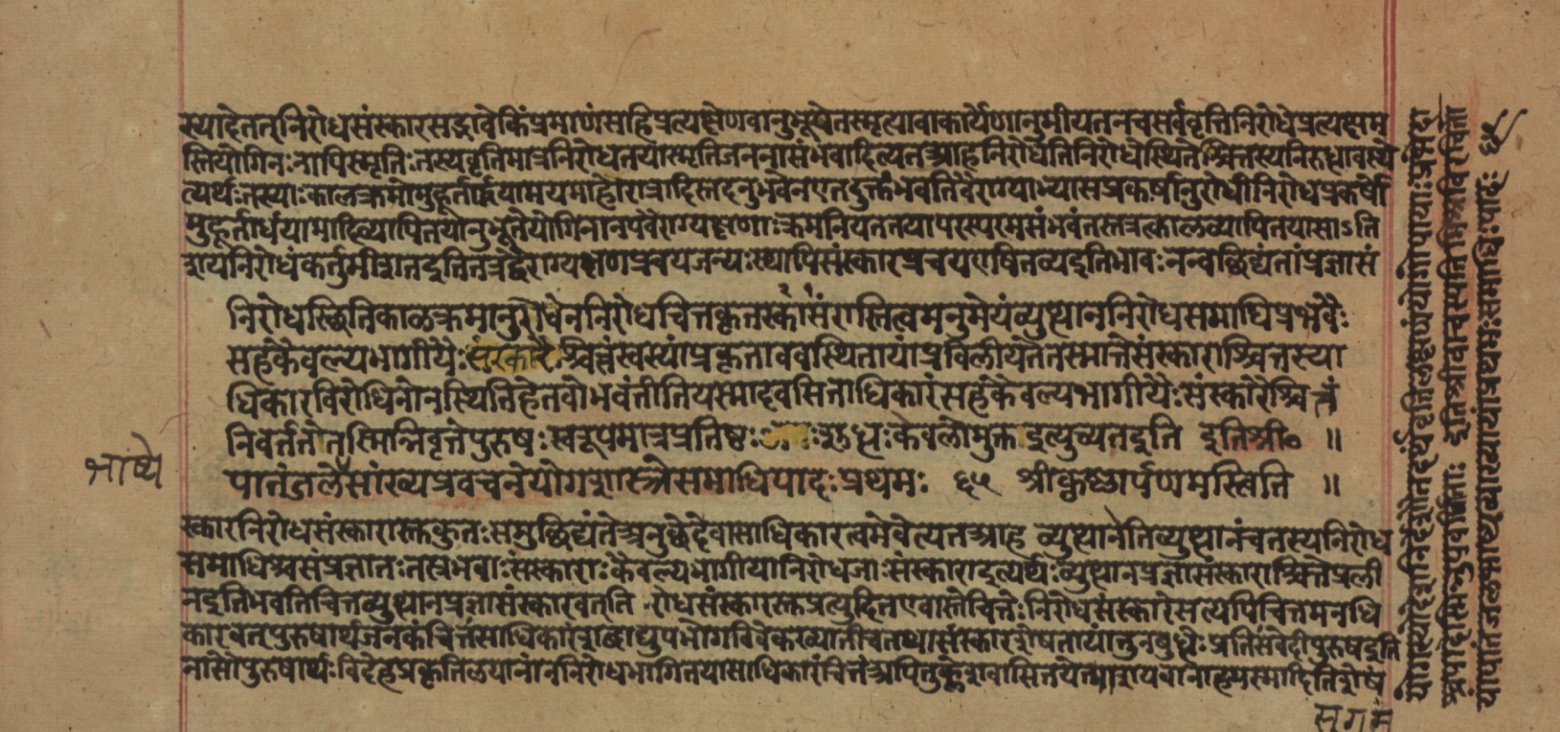 स्यादेतत् निरोधसंस्कारसद्भावे किं प्रमाणं स हि प्रत्यक्षेण वानुभूयेत स्मृत्या वा कार्येणानुमीयेत न च सर्ववृत्तिनिरोधे प्रत्यक्षम
स्ति योगिनः नापि स्मृतिः तस्य वृत्तिमात्रनिरोधतया स्मृतिजननासंभवादित्यत आह निरोधेति निरोधस्थितेश्चित्तस्य निरुद्धावस्थे
त्यर्थः तस्याः कालक्रमो मुहूर्तार्धयामयामाहोरात्रादिस्तदनुभवेन एतदुक्तं भवति वैराग्याभ्यासप्रकर्षानुरोधी निरोधप्रकर्षो
मुहूर्तार्धयामादिव्यापितयानुभूतो योगिना न परवैराग्यक्षणाः क्रमनियततया परस्परमसंभवंतस्तत्तत्कालव्यापितया साऽति
शयनिरोधं कर्तुमीशत इति तत्तद्वैराग्यक्षणप्रचयजन्यः स्थायिसंस्कारप्रचय एषितव्य इति भावः नन्वच्छिद्यंतां प्रज्ञासं
निरोधस्थितिकाळक्रमानुरोधेन निरोधचित्तकृतस्कासंरास्तित्वमनुमेयं व्युत्थाननिरोधसमाधिप्रभवैः
सह कैवल्यभागीयैः संस्कारैश्चित्तं स्वस्यां प्रकृताववस्थितायां प्रविलीयते तस्मात्ते संस्काराश्चित्तस्या
धिकारविरोधिनो न स्थितिहेतवो भवंतीति यस्मादवसिताधिकारं सह कैवल्यभागीयैः संस्कारैश्चित्तं
निवर्तते तस्मिन्निवृत्ते पुरुषः स्वरूपमात्रप्रतिष्ठः शुद्धः केवलो मुक्त इत्युच्यत इति इतिश्री० ॥
पातंजले सांख्यप्रवचने योगशास्त्रे समाधिपादः प्रथमः ६५ श्रीकृष्णार्पणमस्त्विति ॥
भाष्ये
स्कारा निरोधसंस्कारास्तु कुतः समुच्छिद्यंते अनुच्छेदे वा साधिकारत्वमेवेत्यत आह व्युत्थानेति व्युत्थानं च तस्य निरोध
समाधिश्च संप्रज्ञातः तत्प्रभवाः संस्काराः कैवल्यभागीया निरोधजाः संस्कारा इत्यर्थः व्युत्थानप्रज्ञासंस्काराश्चित्ते प्रली
न इति भवति चित्तं व्युत्थानप्रज्ञासंस्कारवत् रोधसंस्कारस्तु प्रत्युदित एवास्ते चित्ते निरोधसंस्कारे सत्यपि चित्तमनधि
कारवत् पुरुषार्थजनकं चित्तं साधिकारं शब्दाद्युपभोगविवेकख्याती च तथा संस्कारशेषतायां तु न बुद्धेः प्रतिसंवेदी पुरुष इति
नासौ पुरुषार्थः विदेहप्रकृतिळयानां न निरोधभागितया साधिकारं चित्तं अपि तु क्लेशवासिततयेत्याशयवानाह यस्मादिति शेषं
सुगमं
योगस्योद्देशनिर्देशौ तदर्थं वृत्तिलक्षणं योगोपायाः प्रभेदा
श्च पादेस्मिन्नुपवर्णिताः इति श्रीवाचस्पतिमिश्रविरचिता
यां पातंजलभाष्यव्याख्यायां प्रथमः समाधिः पादः ६५